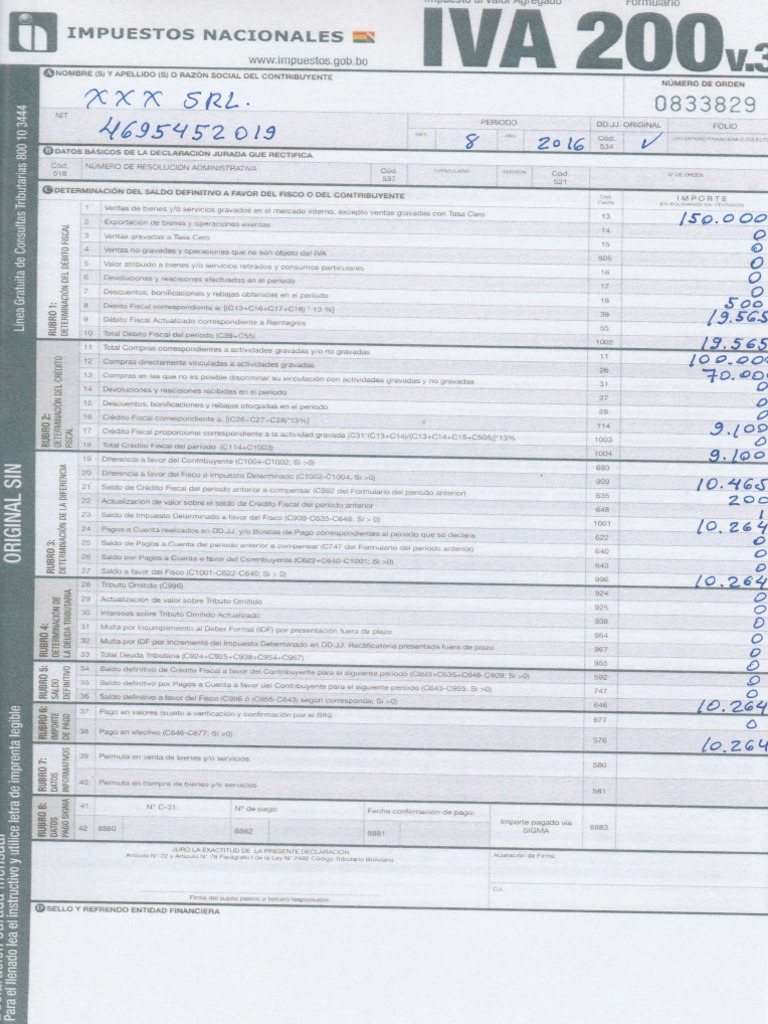 Impuesto al Valor Agregado
Formulario
IMPUESTOS NACIONALES
www.impuestos.gob.bo
IVA 200 v.3
A NOMBRE (S) Y APELLIDO (S) O RAZÓN SOCIAL DEL CONTRIBUYENTE
XXX SRL.
NÚMERO DE ORDEN
0833829
NIT
4695452019
PERIODO
MES 8 AÑO 2016
DD.JJ. ORIGINAL
Cód. 534 ✓
FOLIO
B DATOS BÁSICOS DE LA DECLARACIÓN JURADA QUE RECTIFICA
Cód. 518 NÚMERO DE RESOLUCIÓN ADMINISTRATIVA Cód. 537 FORMULARIO VERSIÓN Cód. 521 Nº DE ORDEN
C DETERMINACIÓN DEL SALDO DEFINITIVO A FAVOR DEL FISCO O DEL CONTRIBUYENTE
Cód. Casilla IMPORTE
RUBRO 1: DETERMINACIÓN DEL DÉBITO FISCAL
1 Ventas de bienes y/o servicios gravados en el mercado interno, excepto ventas gravadas con Tasa Cero 13 150.000
2 Exportación de bienes y operaciones exentas 14 0
3 Ventas gravadas a Tasa Cero 15 0
4 Ventas no gravadas y operaciones que no son objeto del IVA 505 0
5 Valor atribuido a bienes y/o servicios retirados y consumos particulares 16 0
6 Devoluciones y rescisiones efectuadas en el periodo 17 0
7 Descuentos, bonificaciones y rebajas obtenidas en el periodo 18 500
8 Débito Fiscal correspondiente a: [(C13+C16+C17+C18) * 13 %] 39 19.565
9 Débito Fiscal Actualizado correspondiente a Reintegros 55
10 Total Débito Fiscal del periodo (C39+C55) 1002 19.565
RUBRO 2: DETERMINACIÓN DEL CRÉDITO FISCAL
11 Total Compras correspondientes a actividades gravadas y/o no gravadas 11 100.000
12 Compras directamente vinculadas a actividades gravadas 26 70.000
13 Compras en las que no es posible discriminar su vinculación con actividades gravadas y no gravadas 31 0
14 Devoluciones y rescisiones recibidas en el periodo 27 0
15 Descuentos, bonificaciones y rebajas otorgadas en el periodo 28 0
16 Crédito Fiscal correspondiente a: [(C26+C27+C28)*13%] 114 9.100
17 Crédito Fiscal proporcional correspondiente a la actividad gravada (C31*(C13+C14)/(C13+C14+C15+C505))*13% 1003 0
18 Total Crédito Fiscal del periodo (C114+C1003) 1004 9.100
RUBRO 3: DETERMINACIÓN DE LA DIFERENCIA
19 Diferencia a favor del Contribuyente (C1004-C1002; Si >0) 693
20 Diferencia a favor del Fisco o Impuesto Determinado (C1002-C1004; Si >0) 909 10.465
21 Saldo de Crédito Fiscal del periodo anterior a compensar (C592 del Formulario del periodo anterior) 635 200
22 Actualización de valor sobre el saldo de Crédito Fiscal del periodo anterior 648 1
23 Saldo de Impuesto Determinado a favor del Fisco (C909-C635-C648; Si > 0) 1001 10.264
24 Pagos a Cuenta realizados en DD.JJ. y/o Boletas de Pago correspondientes al periodo que se declara 622 0
25 Saldo de Pagos a Cuenta del periodo anterior a compensar (C747 del Formulario del periodo anterior) 640 0
26 Saldo por Pagos a Cuenta a favor del Contribuyente (C622+C640-C1001; Si >0) 643 0
27 Saldo a favor del Fisco (C1001-C622-C640; Si > 0) 996 10.264
RUBRO 4: DETERMINACIÓN DE LA DEUDA TRIBUTARIA
28 Tributo Omitido (C996) 924 0
29 Actualización de valor sobre Tributo Omitido 925 0
30 Intereses sobre Tributo Omitido Actualizado 938 0
31 Multa por Incumplimiento al Deber Formal (IDF) por presentación fuera de plazo 954 0
32 Multa por IDF por Incremento del Impuesto Determinado en DD.JJ. Rectificatoria presentada fuera de plazo 967 0
33 Total Deuda Tributaria (C924+C925+C938+C954+C967) 955 0
RUBRO 5: SALDO DEFINITIVO
34 Saldo definitivo de Crédito Fiscal a favor del Contribuyente para el siguiente periodo (C693+C635+C648-C909; Si >0) 592 0
35 Saldo definitivo por Pagos a Cuenta a favor del Contribuyente para el siguiente periodo (C643-C955; Si >0) 747 0
36 Saldo definitivo a favor del Fisco (C996 ó (C955-C643) según corresponda; Si >0) 646 10.264
RUBRO 6: IMPORTE DE PAGO
37 Pago en valores (sujeto a verificación y confirmación por el SIN) 677 0
38 Pago en efectivo (C646-C677; Si >0) 576 10.264
RUBRO 7: DATOS INFORMATIVOS
39 Permuta en venta de bienes y/o servicios 580
40 Permuta en compra de bienes y/o servicios 581
RUBRO 8: DATOS PAGO SIGMA
41 Nº C-31: Nº de pago: Fecha confirmación de pago: Importe pagado vía SIGMA 8883
42 8880 8882 8881
JURO LA EXACTITUD DE LA PRESENTE DECLARACIÓN
Artículo Nº 22 y Artículo Nº 78 Parágrafo I de la Ley Nº 2492 Código Tributario Boliviano
Aclaración de Firma:
C.I.
Firma del sujeto pasivo o tercero responsable
D SELLO Y REFRENDO ENTIDAD FINANCIERA
Línea Gratuita de Consultas Tributarias 800 10 3444
ORIGINAL SIN
Para el llenado lea el instructivo y utilice letra de imprenta legible